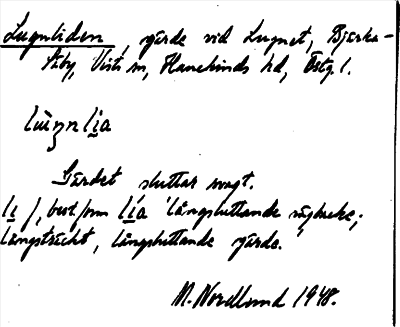 Lugnliden, gärde vid Lugnet, Bjärka-
Säby, Vists sn, Hanekinds hd, Östg. l.
lùŋnli̲a
Gärdet sluttar svagt.
li̲ f, best. form li̲a 'långsluttande vägbacke;
långsträckt, långsluttande gärde.'
M. Nordlund 1948.